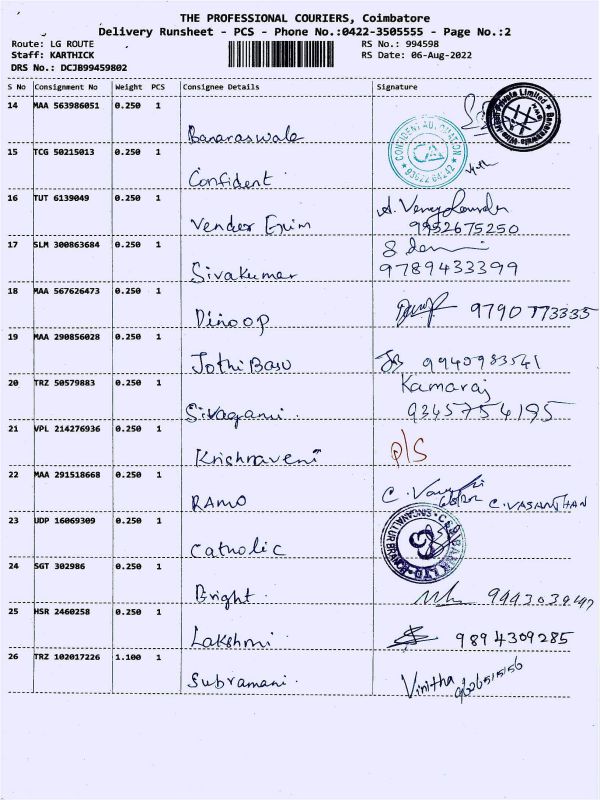 THE PROFESSIONAL COURIERS, Coimbatore
Delivery Runsheet - PCS - Phone No.:0422-3505555 - Page No.:2
Route: LG ROUTE RS No.: 994598
Staff: KARTHICK RS Date: 06-Aug-2022
DRS No.: DCJB99459802
S No Consignment No Weight PCS Consignee Details Signature
14 MAA 563986051 0.250 1
Banaraswala
15 TCG 50215013 0.250 1 CONFIDENT AUTOMATION
Confident
16 TUT 6139049 0.250 1
Vender 9952675250
17 SLM 300863684 0.250 1
Sivakumar 9789433399
18 MAA 567626473 0.250 1
Dinoop 9790773335
19 MAA 290856028 0.250 1
Jothi Basu JB 9940983541
20 TRZ 50579883 0.250 1 Kamaraj
Sivagami 9345754195
21 VPL 214276936 0.250 1
Krishnaveni P/S
22 MAA 291518668 0.250 1
RAMO C. VASANTHAN
23 UDP 16069309 0.250 1
Catholic
24 SGT 302986 0.250 1
Bright
25 HSR 2460258 0.250 1
Lakshmi 9894309285
26 TRZ 102017226 1.100 1
Subramani Vinitha